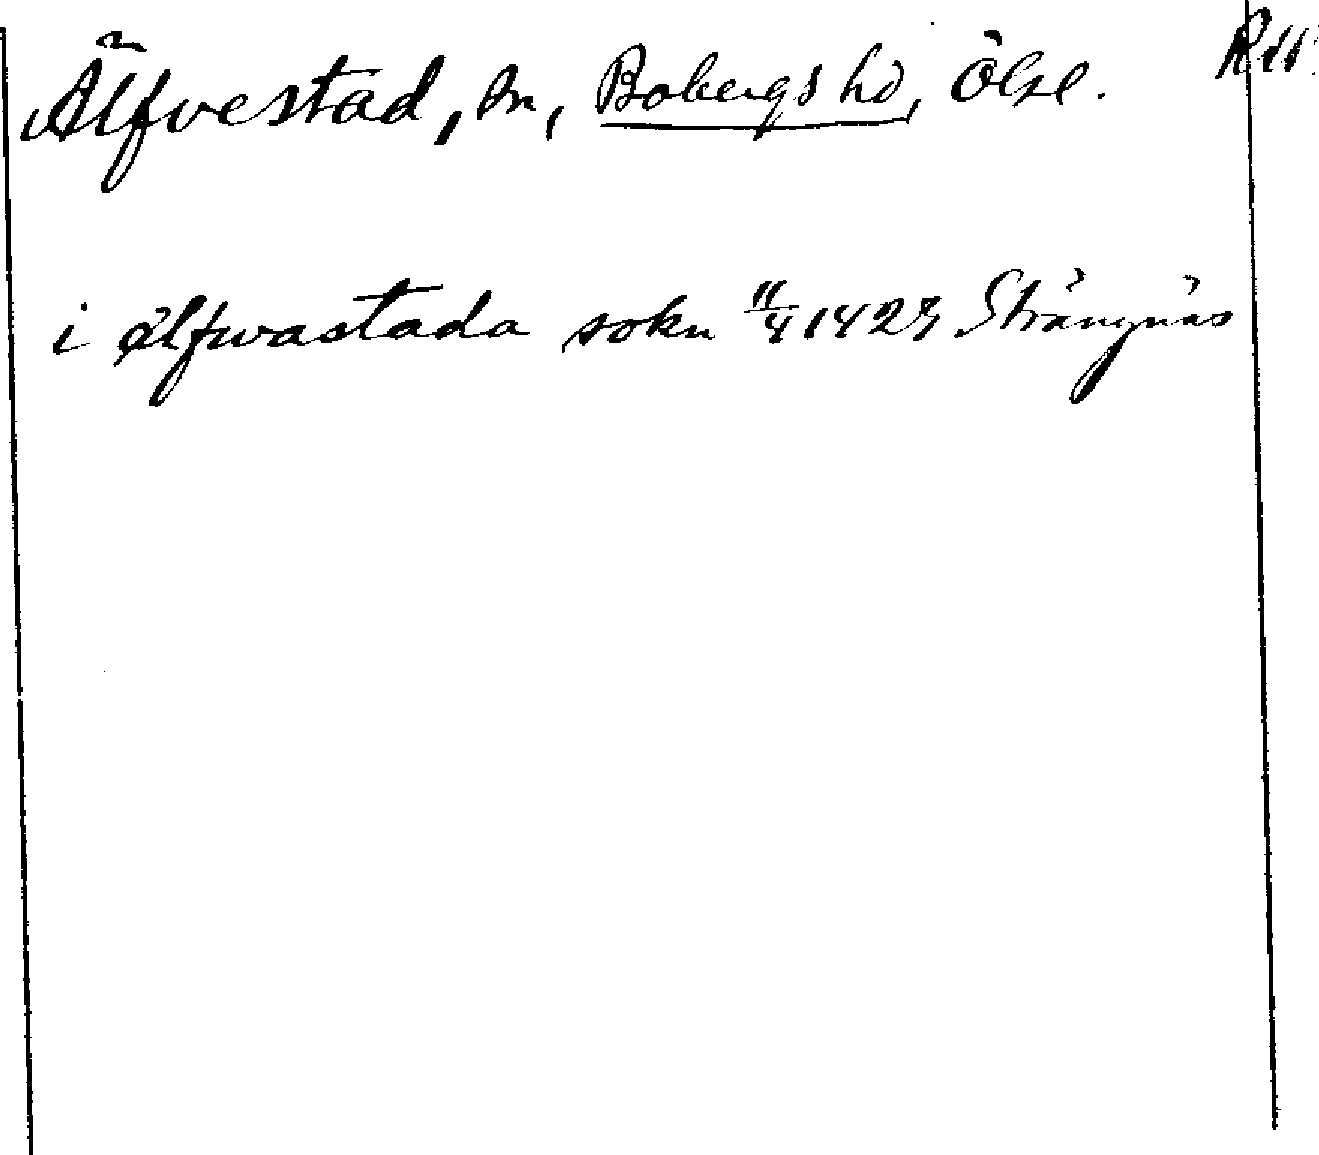 Älfvestad, sn, Bobergs hd, Ögl.
i ælfwastada sokn 11/4 1429 Strängnäs